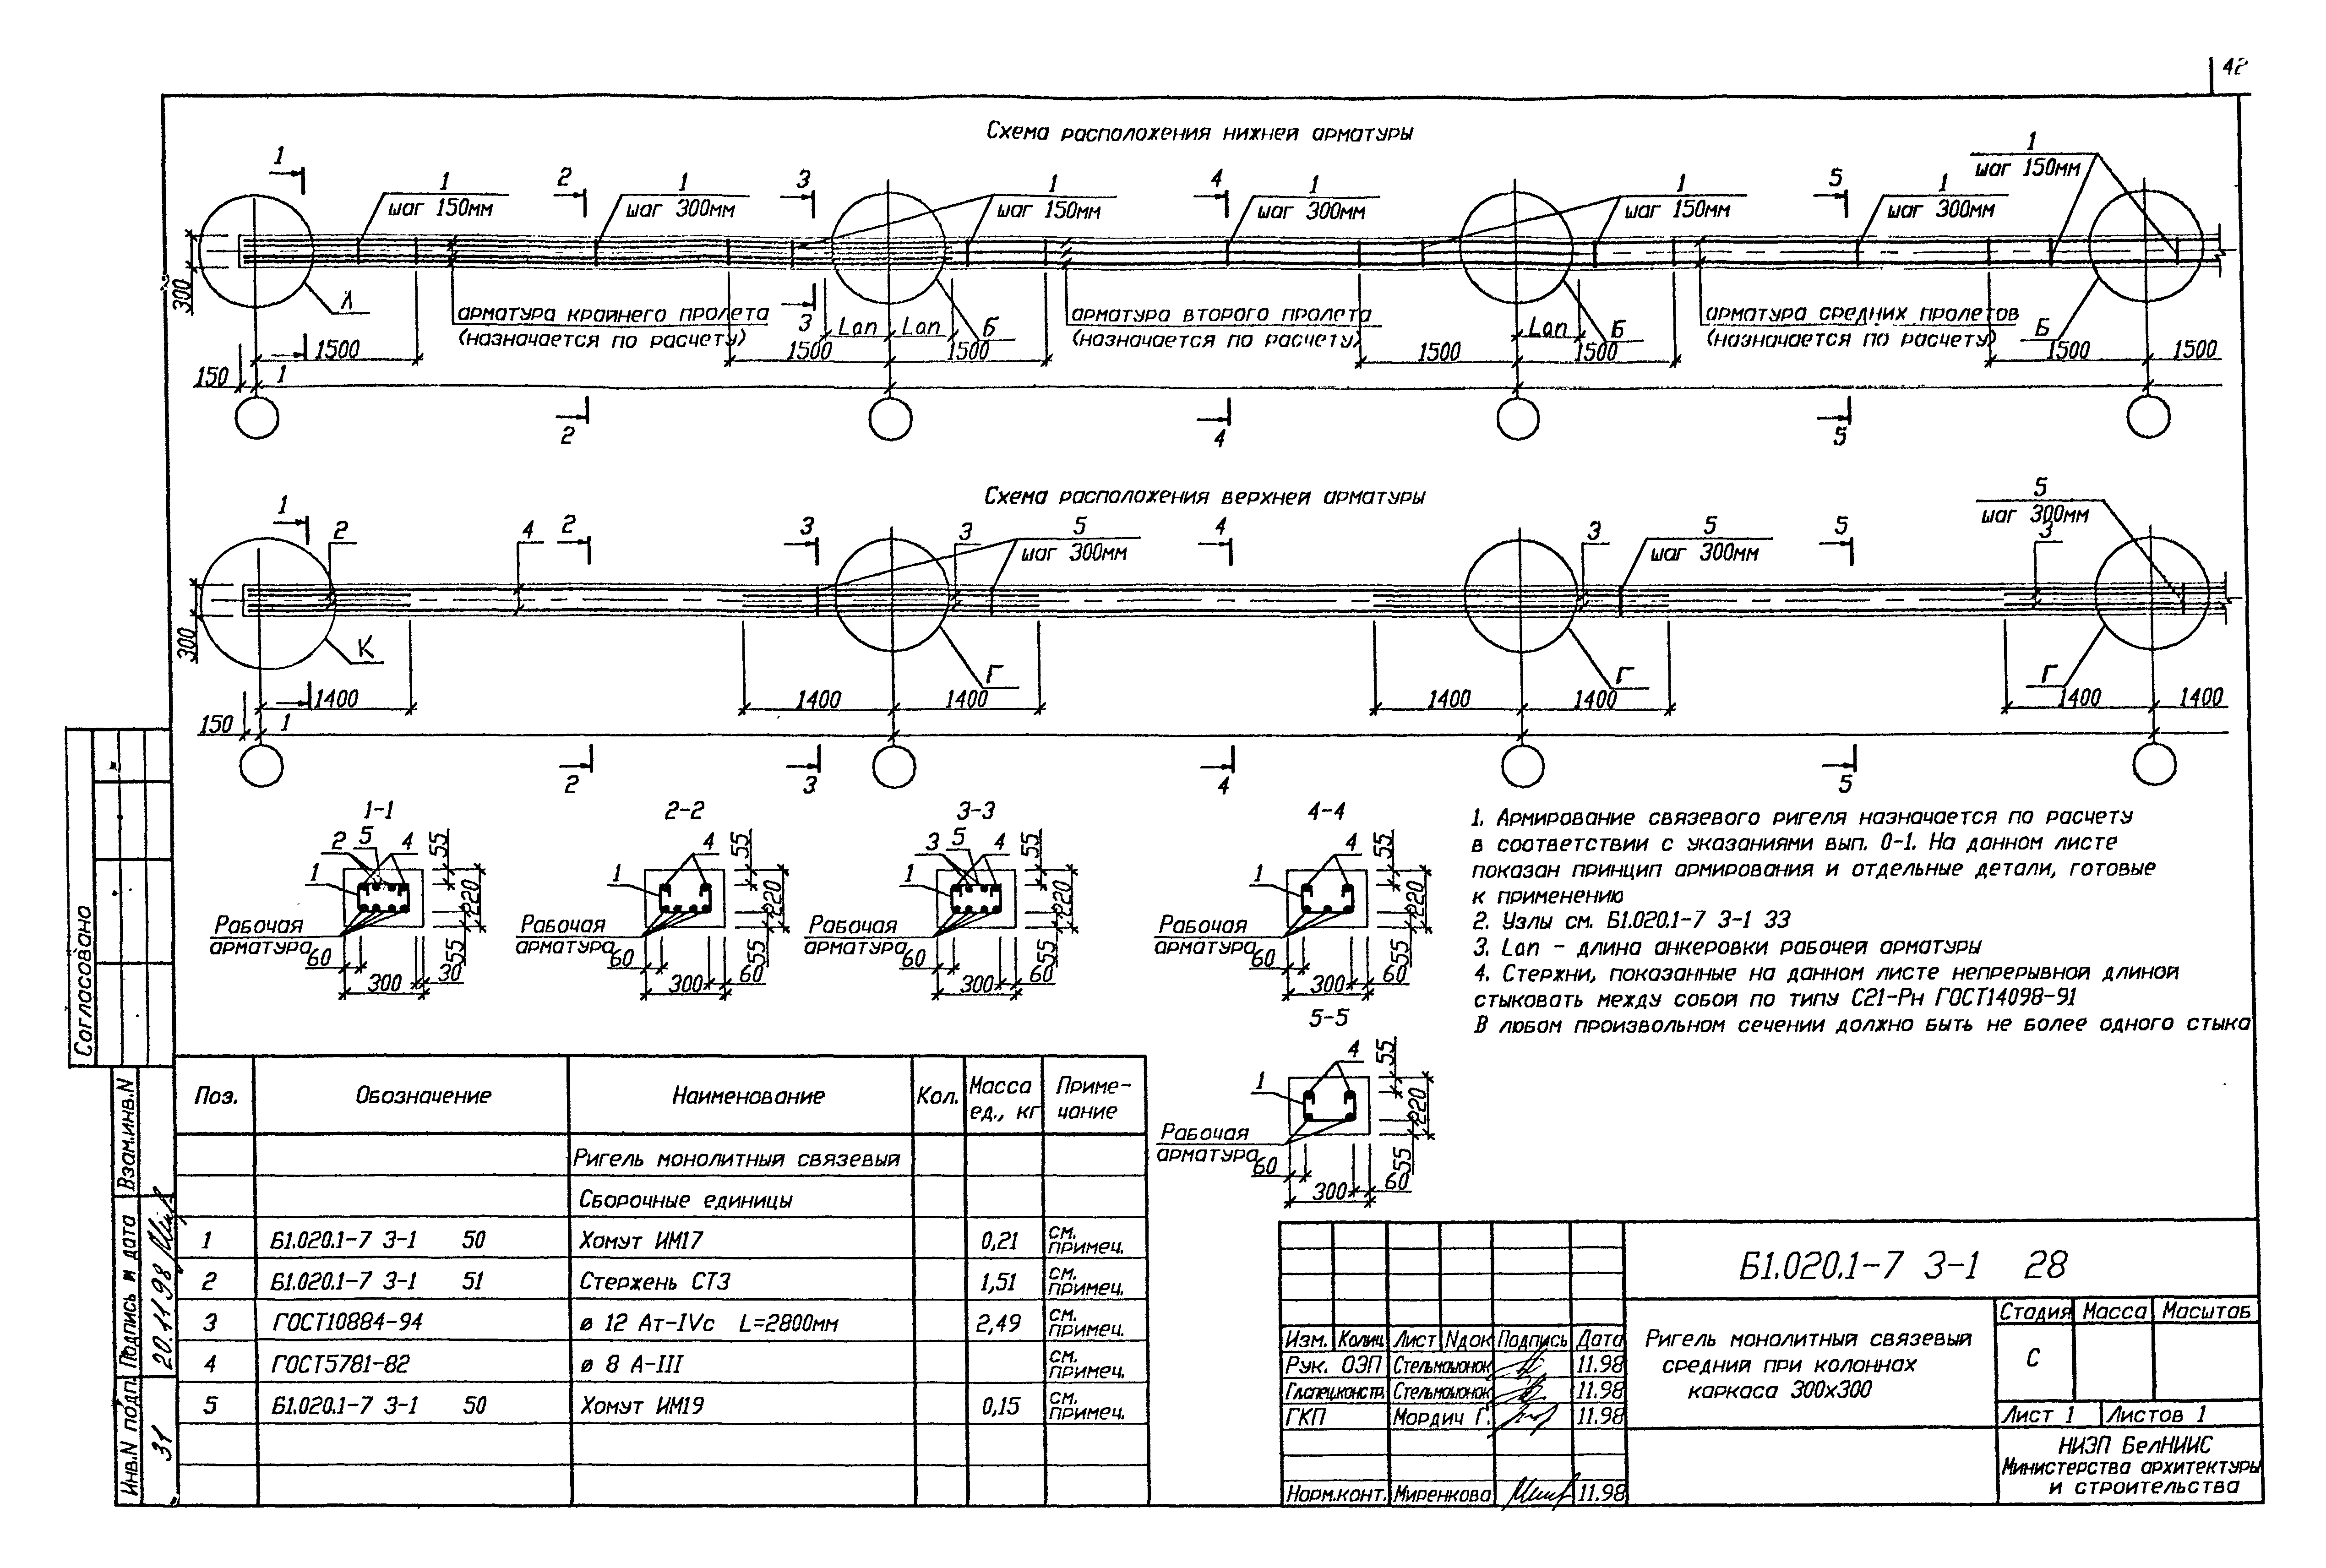 42
Схема расположения нижней арматуры
1
1
шаг 150мм
2
1
шаг 300мм
3
1
шаг 150мм
4
1
шаг 300мм
1
шаг 150мм
5
1
шаг 300мм
1
шаг 150мм
300
Л
арматура крайнего пролета
(назначается по расчету)
3
Lап
Lап
Б
арматура второго пролета
(назначается по расчету)
Lап
Б
арматура средних пролетов
(назначается по расчету)
Б
1500
1500
1500
1500
1500
1500
1500
150
1
2
4
5
Схема расположения верхней арматуры
1
2
4
2
3
3
5
шаг 300мм
4
3
5
шаг 300мм
5
5
шаг 300мм
3
300
К
Г
Г
Г
1400
1400
1400
1400
1400
1400
1400
150
1
2
3
4
5
1-1
2
5
4
1
Рабочая
арматура
60
300
30
55
220
55
2-2
4
1
Рабочая
арматура
60
300
60
55
220
55
3-3
3
5
4
1
Рабочая
арматура
60
300
60
55
220
55
4-4
4
1
Рабочая
арматура
60
300
60
55
220
55
5-5
4
1
Рабочая
арматура
60
300
60
55
220
55
1. Армирование связевого ригеля назначается по расчету
в соответствии с указаниями вып. 0-1. На данном листе
показан принцип армирования и отдельные детали, готовые
к применению
2. Узлы см. Б1.020.1-7 3-1 33
3. Lап - длина анкеровки рабочей арматуры
4. Стержни, показанные на данном листе непрерывной длиной
стыковать между собой по типу С21-Рн ГОСТ14098-91
В любом произвольном сечении должно быть не более одного стыка
Поз. Обозначение Наименование Кол. Масса ед., кг Примечание
Ригель монолитный связевый
Сборочные единицы
1 Б1.020.1-7 3-1 50 Хомут ИМ17 0,21 см. примеч.
2 Б1.020.1-7 3-1 51 Стержень СТ3 1,51 см. примеч.
3 ГОСТ10884-94 ø 12 Ат-IVс L=2800мм 2,49 см. примеч.
4 ГОСТ5781-82 ø 8 А-III см. примеч.
5 Б1.020.1-7 3-1 50 Хомут ИМ19 0,15 см. примеч.
Согласовано
Взам.инв.N
Подпись и дата
20.11.98
Инв.N подп.
31
Б1.020.1-7 3-1 28
Изм. Колич. Лист Nдок Подпись Дата
Рук. ОЭП Стельмашонок 11.98
Гл.спец.констр. Стельмашонок 11.98
ГКП Мордич Г. 11.98
Норм.конт. Миренкова 11.98
Ригель монолитный связевый
средний при колоннах
каркаса 300х300
Стадия Масса Масштаб
С
Лист 1 Листов 1
НИЭП БелНИИС
Министерства архитектуры
и строительства